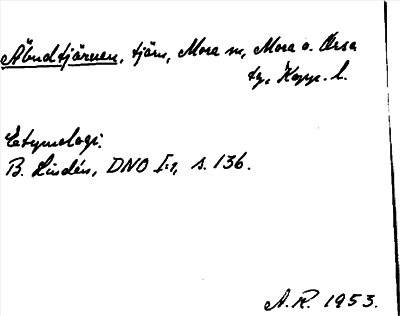 Åbudtjärnen, tjärn, Mora sn, Mora o. Orsa
tg, Kopp. l.
Etymologi.
B. Lindén, DNO I:1, s. 136.
A.R. 1953.